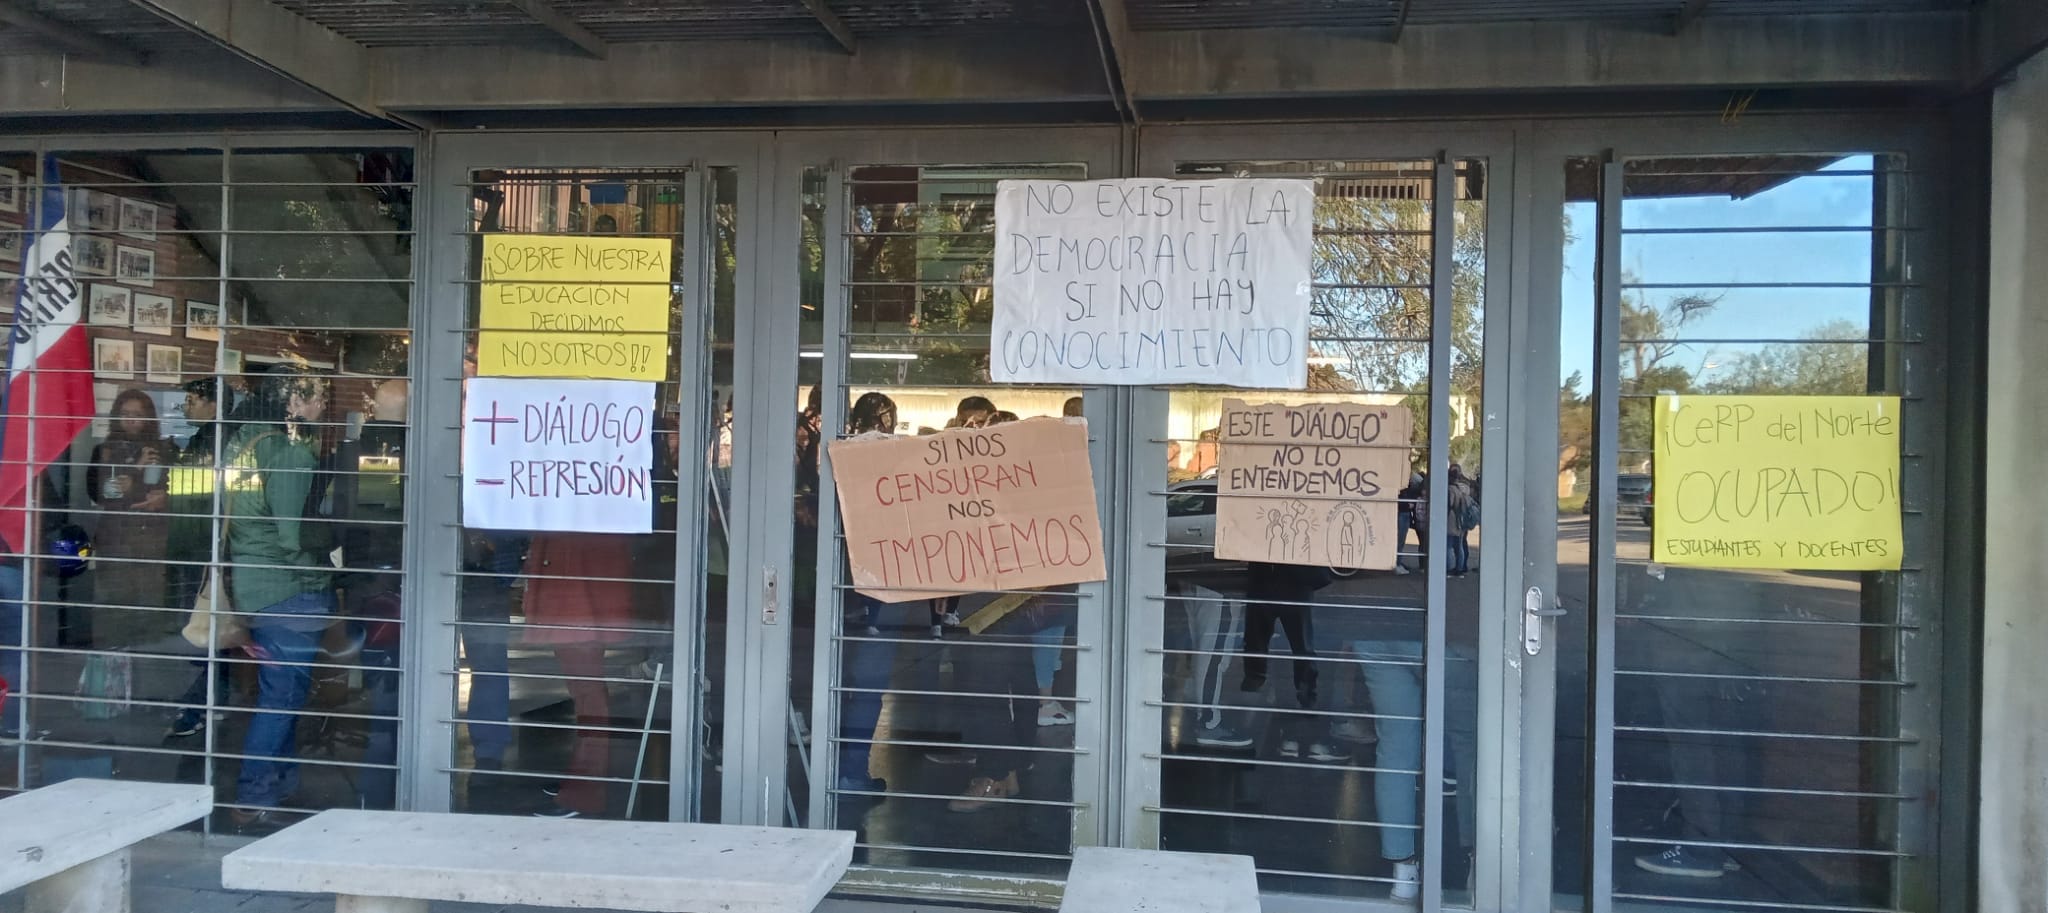 ¡¡SOBRE NUESTRA
EDUCACIÓN
DECIDIMOS
NOSOTROS!!
+ DIÁLOGO
- REPRESIÓN
NO EXISTE LA
DEMOCRACIA
SI NO HAY
CONOCIMIENTO
SI NOS
CENSURAN
NOS
IMPONEMOS
ESTE "DIÁLOGO"
NO LO
ENTENDEMOS
¡CeRP del Norte
OCUPADO!
ESTUDIANTES Y DOCENTES